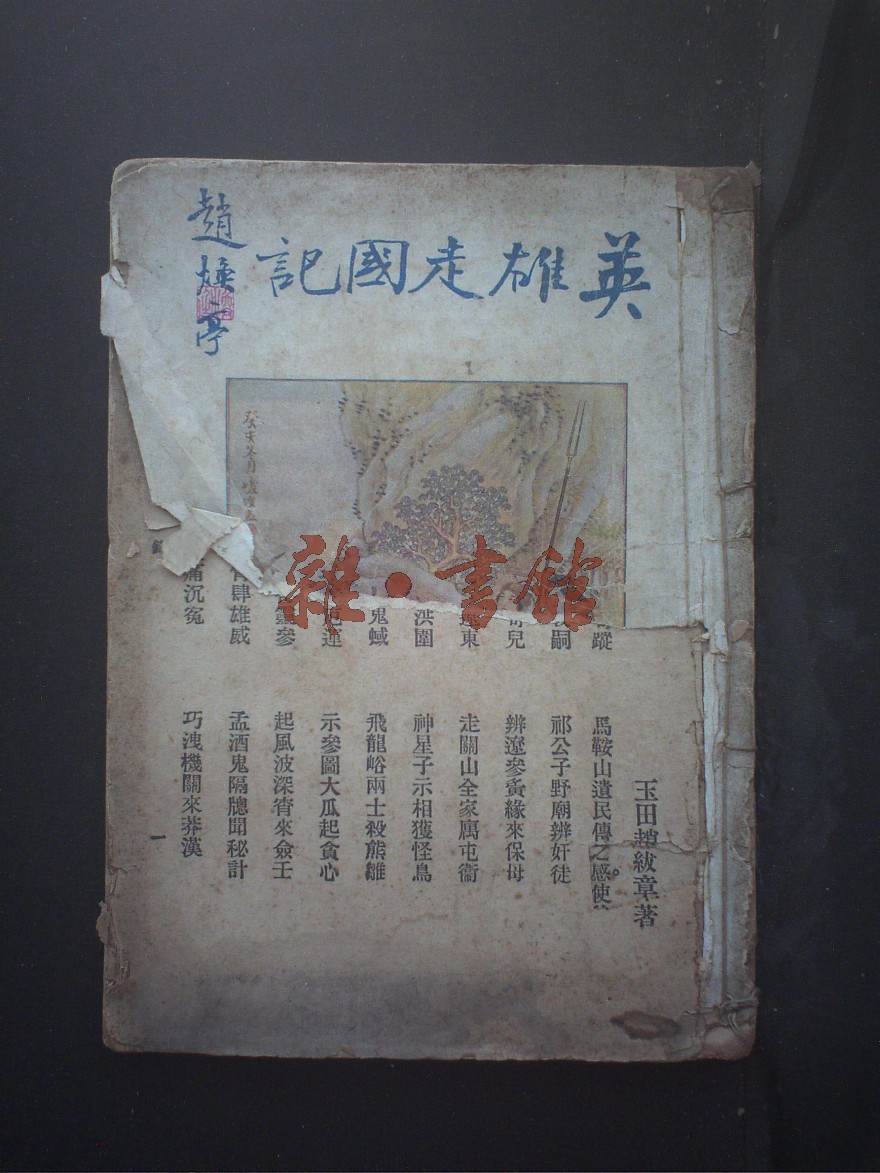 英雄走國記
趙煥亭
雜·書館
玉田趙紱章著
蹤 馬鞍山遺民傳之感使
嗣 祁公子野廟辨奸徒
兒 辨遼參夤緣來保母
東 走關山全家厲屯衞
洪圍 神星子示相獲怪鳥
鬼蜮 飛龍峪兩士殺熊雛
連 示參圖大瓜起貪心
參 起風波深宵來僉壬
肆雄威 孟酒鬼隔牕聞秘計
沉冤 巧洩機關來莽漢
一